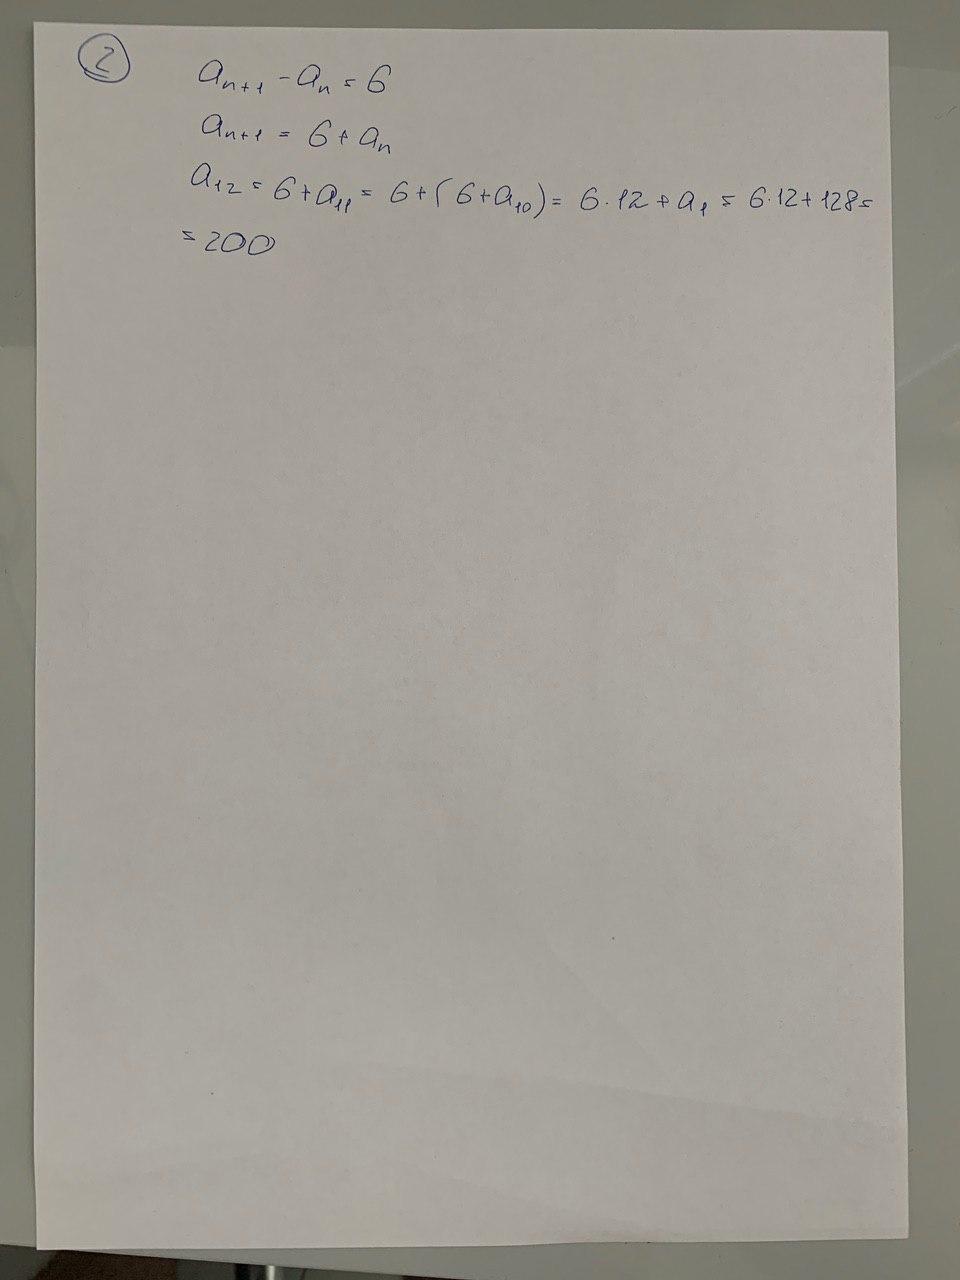 2
aₙ₊₁ - aₙ = 6
aₙ₊₁ = 6 + aₙ
a₁₂ = 6 + a₁₁ = 6 + (6 + a₁₀) = 6 · 12 + a₁ = 6 · 12 + 128 =
= 200